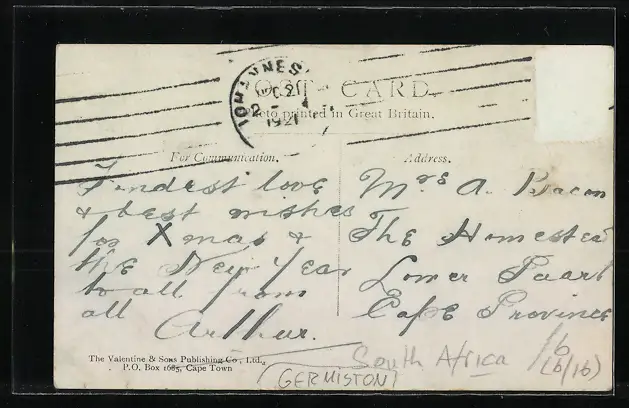 JOHANNES
DC 21
1921
POST CARD.
Photo printed in Great Britain.
For Communication.
Address.
Fondest love
& best wishes
for Xmas &
the New Year
to all from
all
Arthur.
Mrs A. Bacon
The Homestead
Lower Paarl
Cape Province
The Valentine & Sons Publishing Co., Ltd.,
P.O. Box 1685, Cape Town
South Africa
(GERMISTON)
/b
(b/1b)